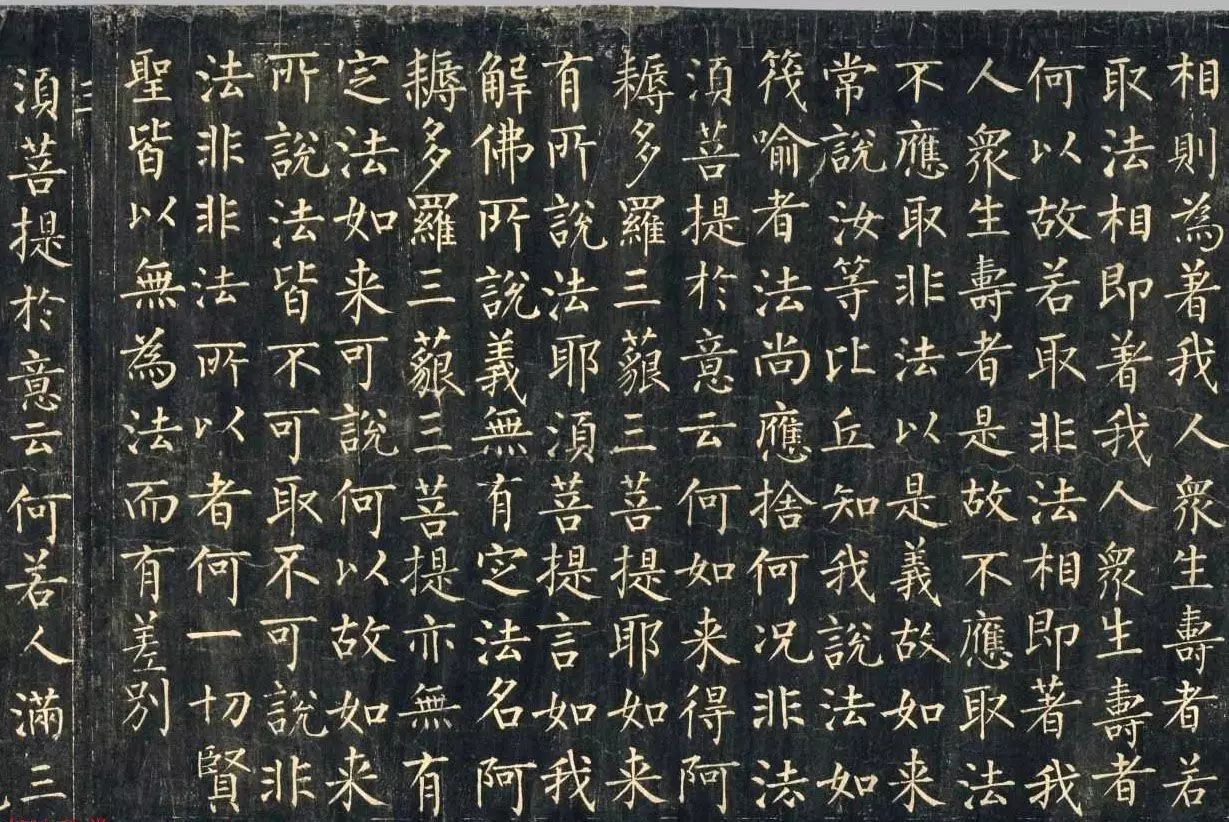 相則為著我人衆生壽者若
取法相即著我人衆生壽者
何以故若取非法相即著我
人衆生壽者是故不應取法
不應取非法以是義故如来
常說汝等比丘知我說法如
筏喻者法尚應捨何况非法
湏菩提於意云何如来得阿
耨多羅三藐三菩提耶如来
有所說法耶湏菩提言如我
解佛所說義無有定法名阿
耨多羅三藐三菩提亦無有
定法如来可說何以故如来
所說法皆不可取不可說非
法非非法所以者何一切賢
聖皆以無為法而有差別
三
湏菩提於意云何若人滿三